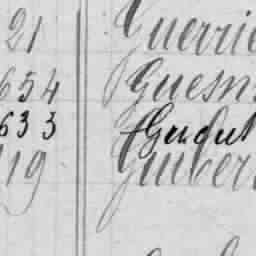 21 Guerrie
654 Guesn
633 Gudul
119 Guiber